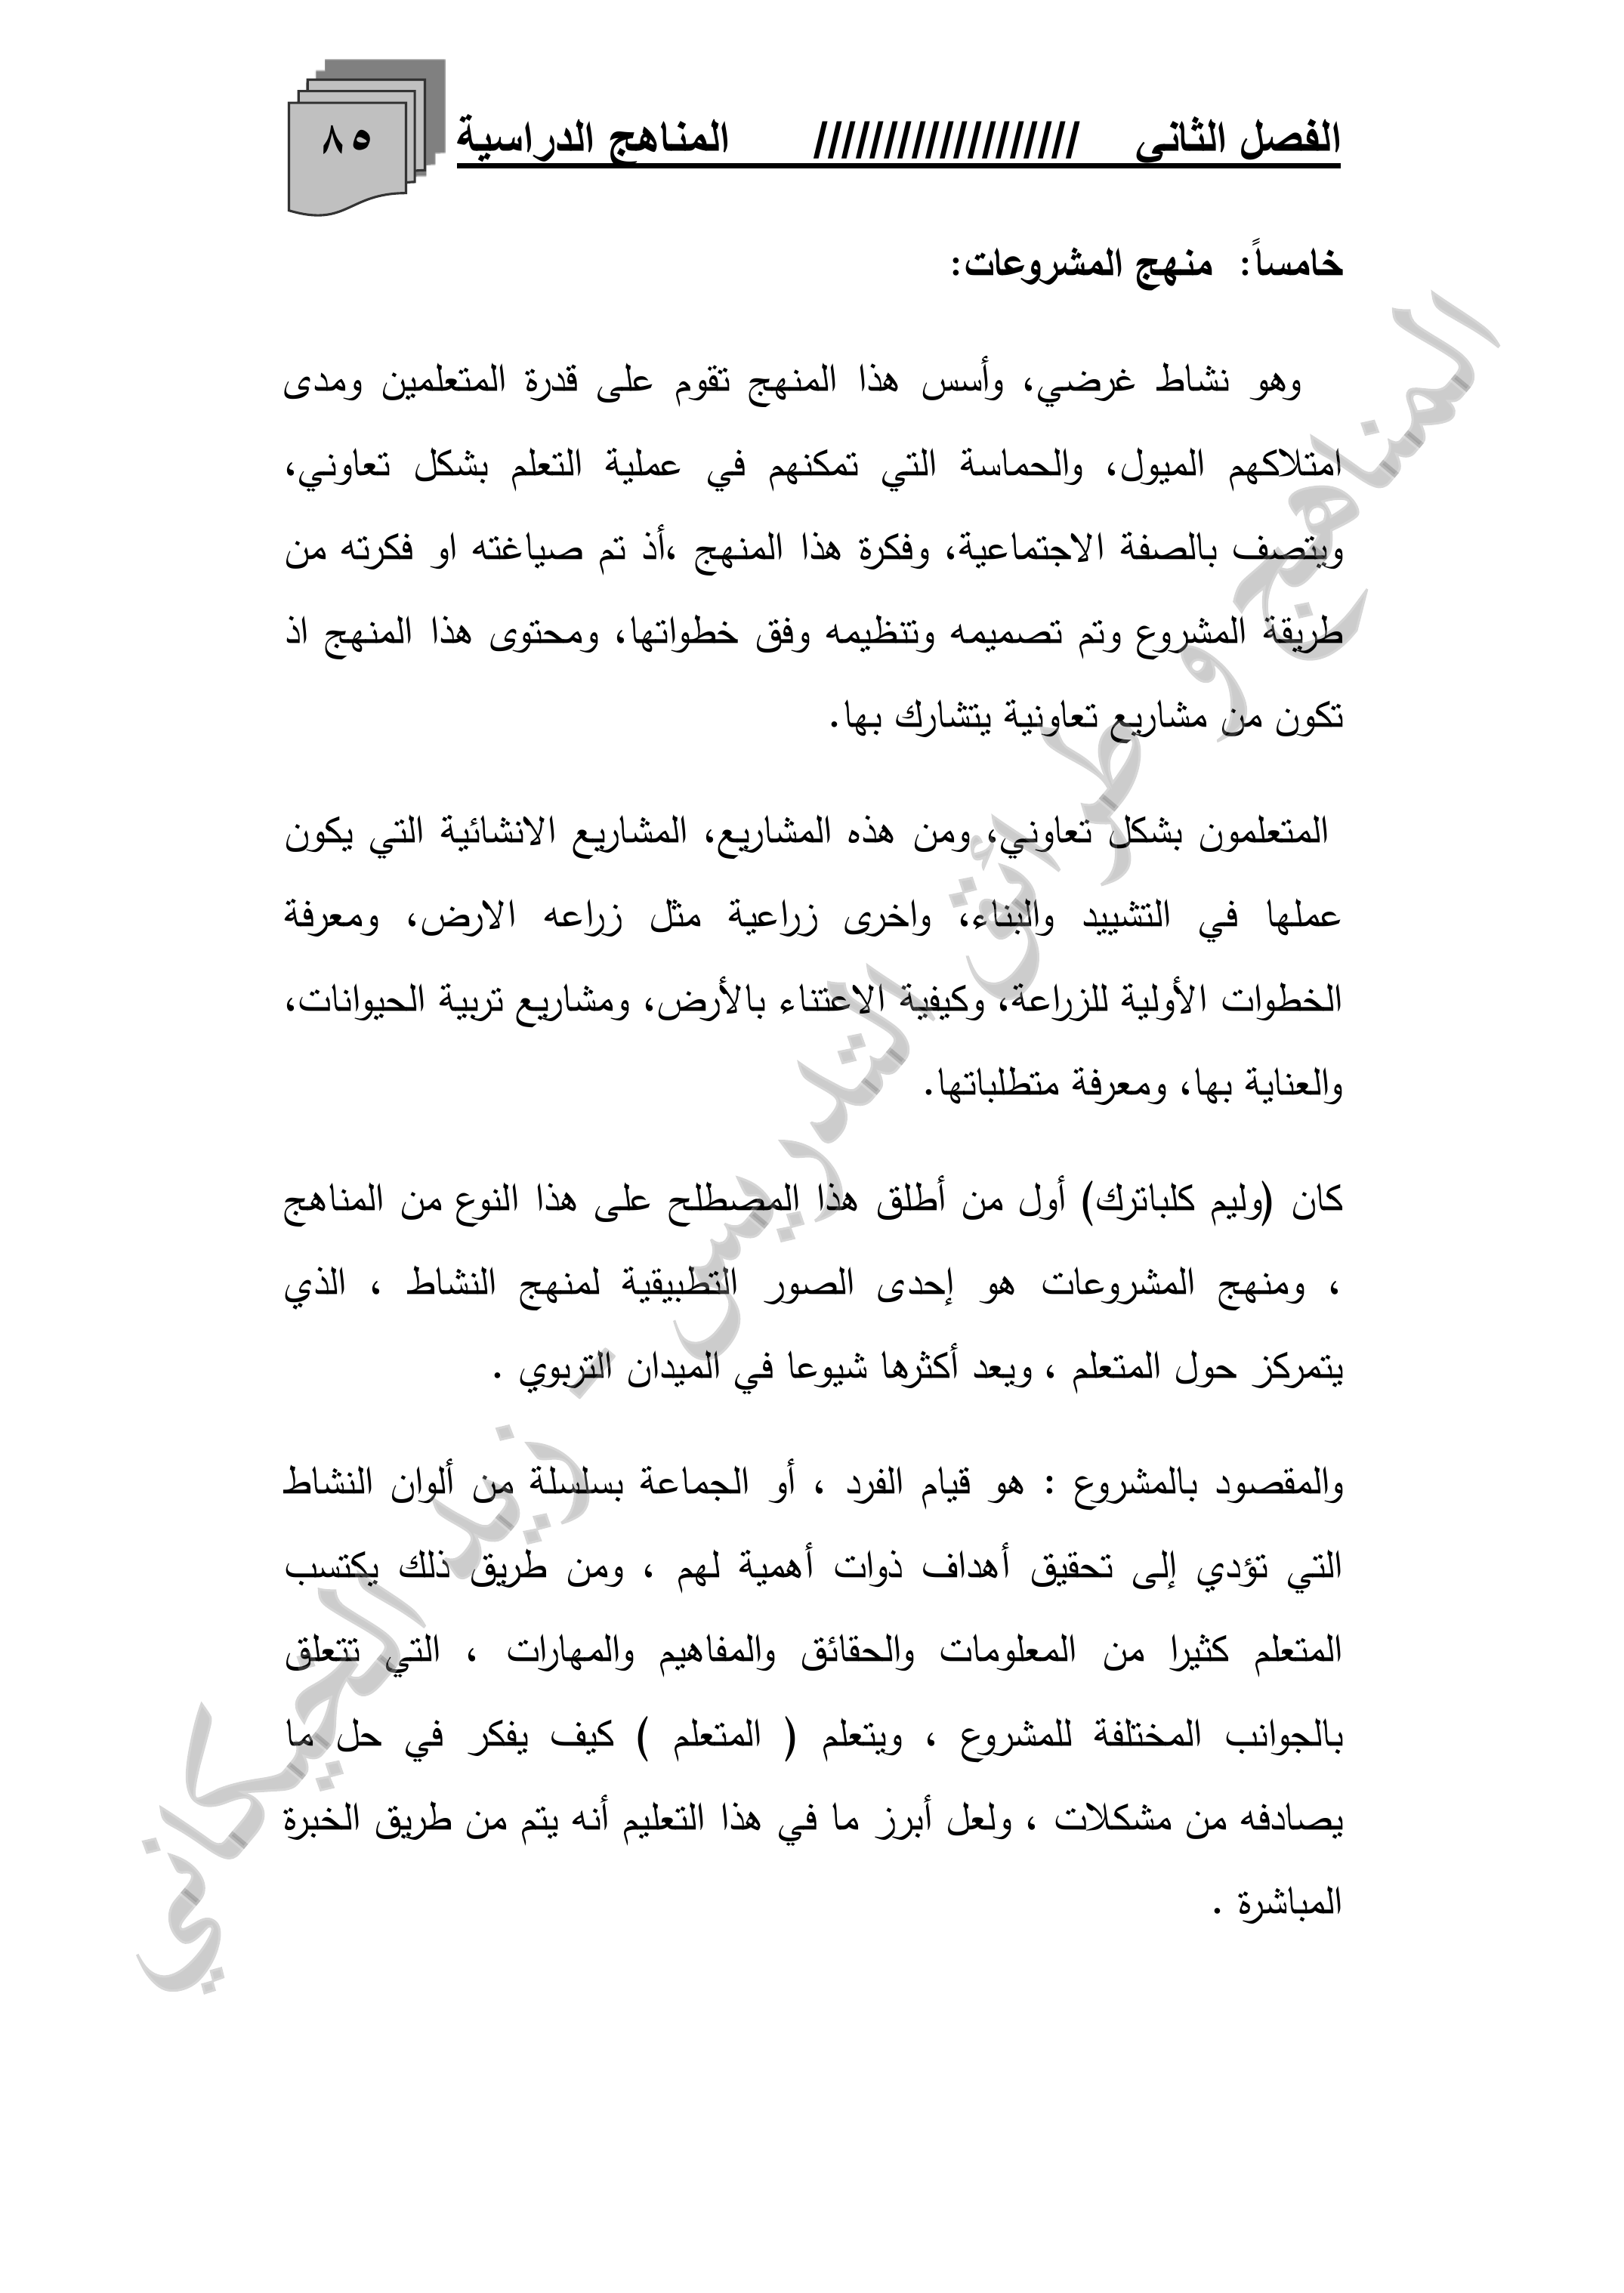 الفصل الثاني /////////////////// المناهج الدراسية ٨٥
خامساً: منهج المشروعات:
وهو نشاط غرضي، وأسس هذا المنهج تقوم على قدرة المتعلمين ومدى
امتلاكهم الميول، والحماسة التي تمكنهم في عملية التعلم بشكل تعاوني،
ويتصف بالصفة الاجتماعية، وفكرة هذا المنهج ،أذ تم صياغته او فكرته من
طريقة المشروع وتم تصميمه وتنظيمه وفق خطواتها، ومحتوى هذا المنهج اذ
تكون من مشاريع تعاونية يتشارك بها.
المتعلمون بشكل تعاوني، ومن هذه المشاريع، المشاريع الانشائية التي يكون
عملها في التشييد والبناء، واخرى زراعية مثل زراعه الارض، ومعرفة
الخطوات الأولية للزراعة، وكيفية الاعتناء بالأرض، ومشاريع تربية الحيوانات،
والعناية بها، ومعرفة متطلباتها.
كان (وليم كلباترك) أول من أطلق هذا المصطلح على هذا النوع من المناهج
، ومنهج المشروعات هو إحدى الصور التطبيقية لمنهج النشاط ، الذي
يتمركز حول المتعلم ، ويعد أكثرها شيوعا في الميدان التربوي .
والمقصود بالمشروع : هو قيام الفرد ، أو الجماعة بسلسلة من ألوان النشاط
التي تؤدي إلى تحقيق أهداف ذوات أهمية لهم ، ومن طريق ذلك يكتسب
المتعلم كثيرا من المعلومات والحقائق والمفاهيم والمهارات ، التي تتعلق
بالجوانب المختلفة للمشروع ، ويتعلم ( المتعلم ) كيف يفكر في حل ما
يصادفه من مشكلات ، ولعل أبرز ما في هذا التعليم أنه يتم من طريق الخبرة
المباشرة .
المناهج و طرائق التدريس - زيد الخيكاني